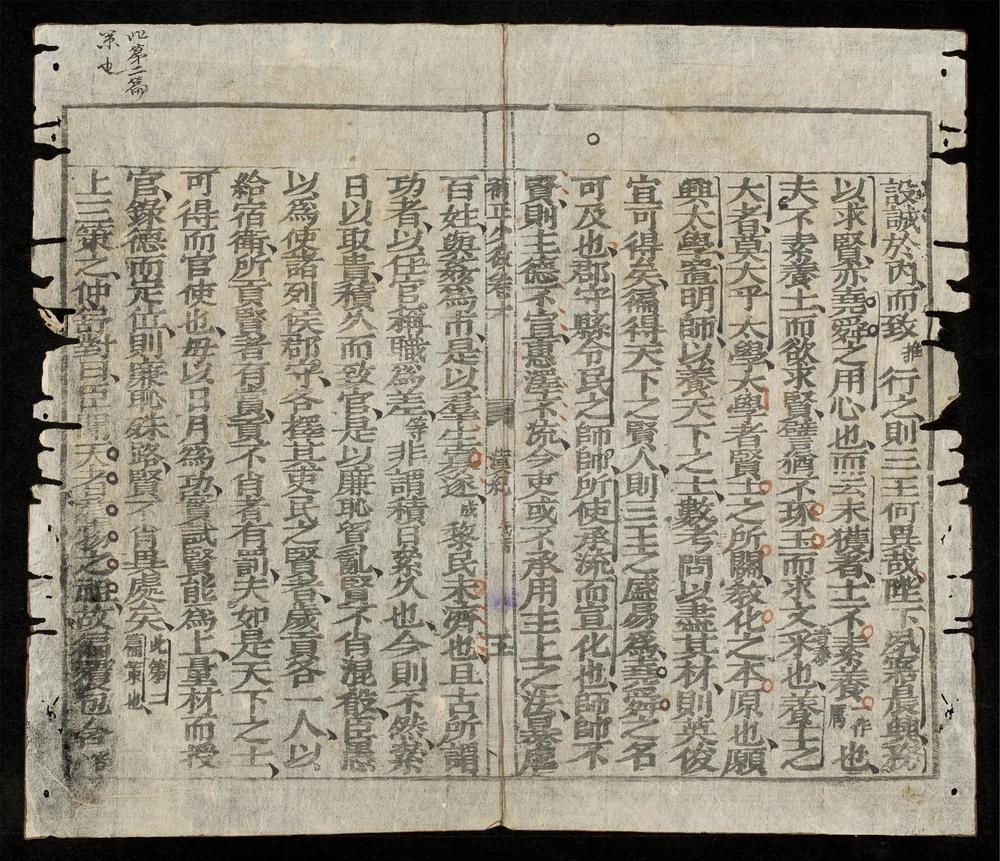 此第二篇
策也
設誠於內而致推行之則三王何異哉陛下夙寤晨興務
以求賢亦堯舜之用心也而云未獲者士不素養一作厲也
夫不素養士而欲求賢譬猶不琢玉而求文采也養士之
大者莫大乎太學太學者賢士之所關教化之本原也願
興太學置明師以養天下之士數考問以盡其材則英俊
宜可得矣徧得天下之賢人則三王之盛易為堯舜之名
可及也郡守縣令民之師帥所使承流而宣化也師帥不
賢則主德不宣惠澤不流今吏或不承用主上之法暴虐
漢紀 五
百姓與姦為市是以羣生寡遂成黎民未濟也且古所謂
功者以任官稱職為差等非謂積日絫久也今則不然絫
日以取貴積久而致官是以廉恥貿亂賢不肖混殽臣愚
以為使諸列侯郡守各擇其吏民之賢者歲貢各一人以
給宿衛所貢賢者有賞貢不肖者有罰夫如是天下之士
可得而官使也毋以日月為功實試賢能為上量材而授
官錄德而定位則廉恥殊路賢不肖異處矣此第一篇策也
上三策之仲舒對曰臣聞天者羣物之祖故徧覆包含